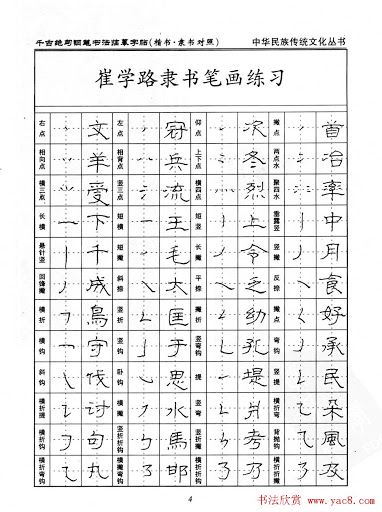 千古绝句钢笔书法临摹字帖(楷书·隶书对照) 中华民族传统文化丛书
崔学路隶书笔画练习
右点 文 左点 冠 仰点 次 撇点 首
相向点 羊 相背点 兵 上下点 冬 两点水 冶
横三点 爱 竖三点 流 横四点 烈 聚四水 率
长横 下 短横 王 短竖 上 垂露竖 中
悬针竖 千 短撇 毛 长撇 令 竖撇 月
回锋撇 成 斜捺 大 平捺 乏 反捺 食
横折 鳥 竖折 匡 撇折 幼 撇点 好
横钩 守 竖钩 于 竖弯钩 孔 弯钩 承
斜钩 伐 卧钩 思 提 堤 竖提 民
横折提 讨 横撇 水 竖弯 横折弯 朵
横折钩 句 竖折折钩 馬 竖折撇 考 背抛钩 風
横折弯钩 丸 横撇弯钩 邯 横折折折钩 乃 横折折撇 及
4
书法欣赏 www.yac8.com